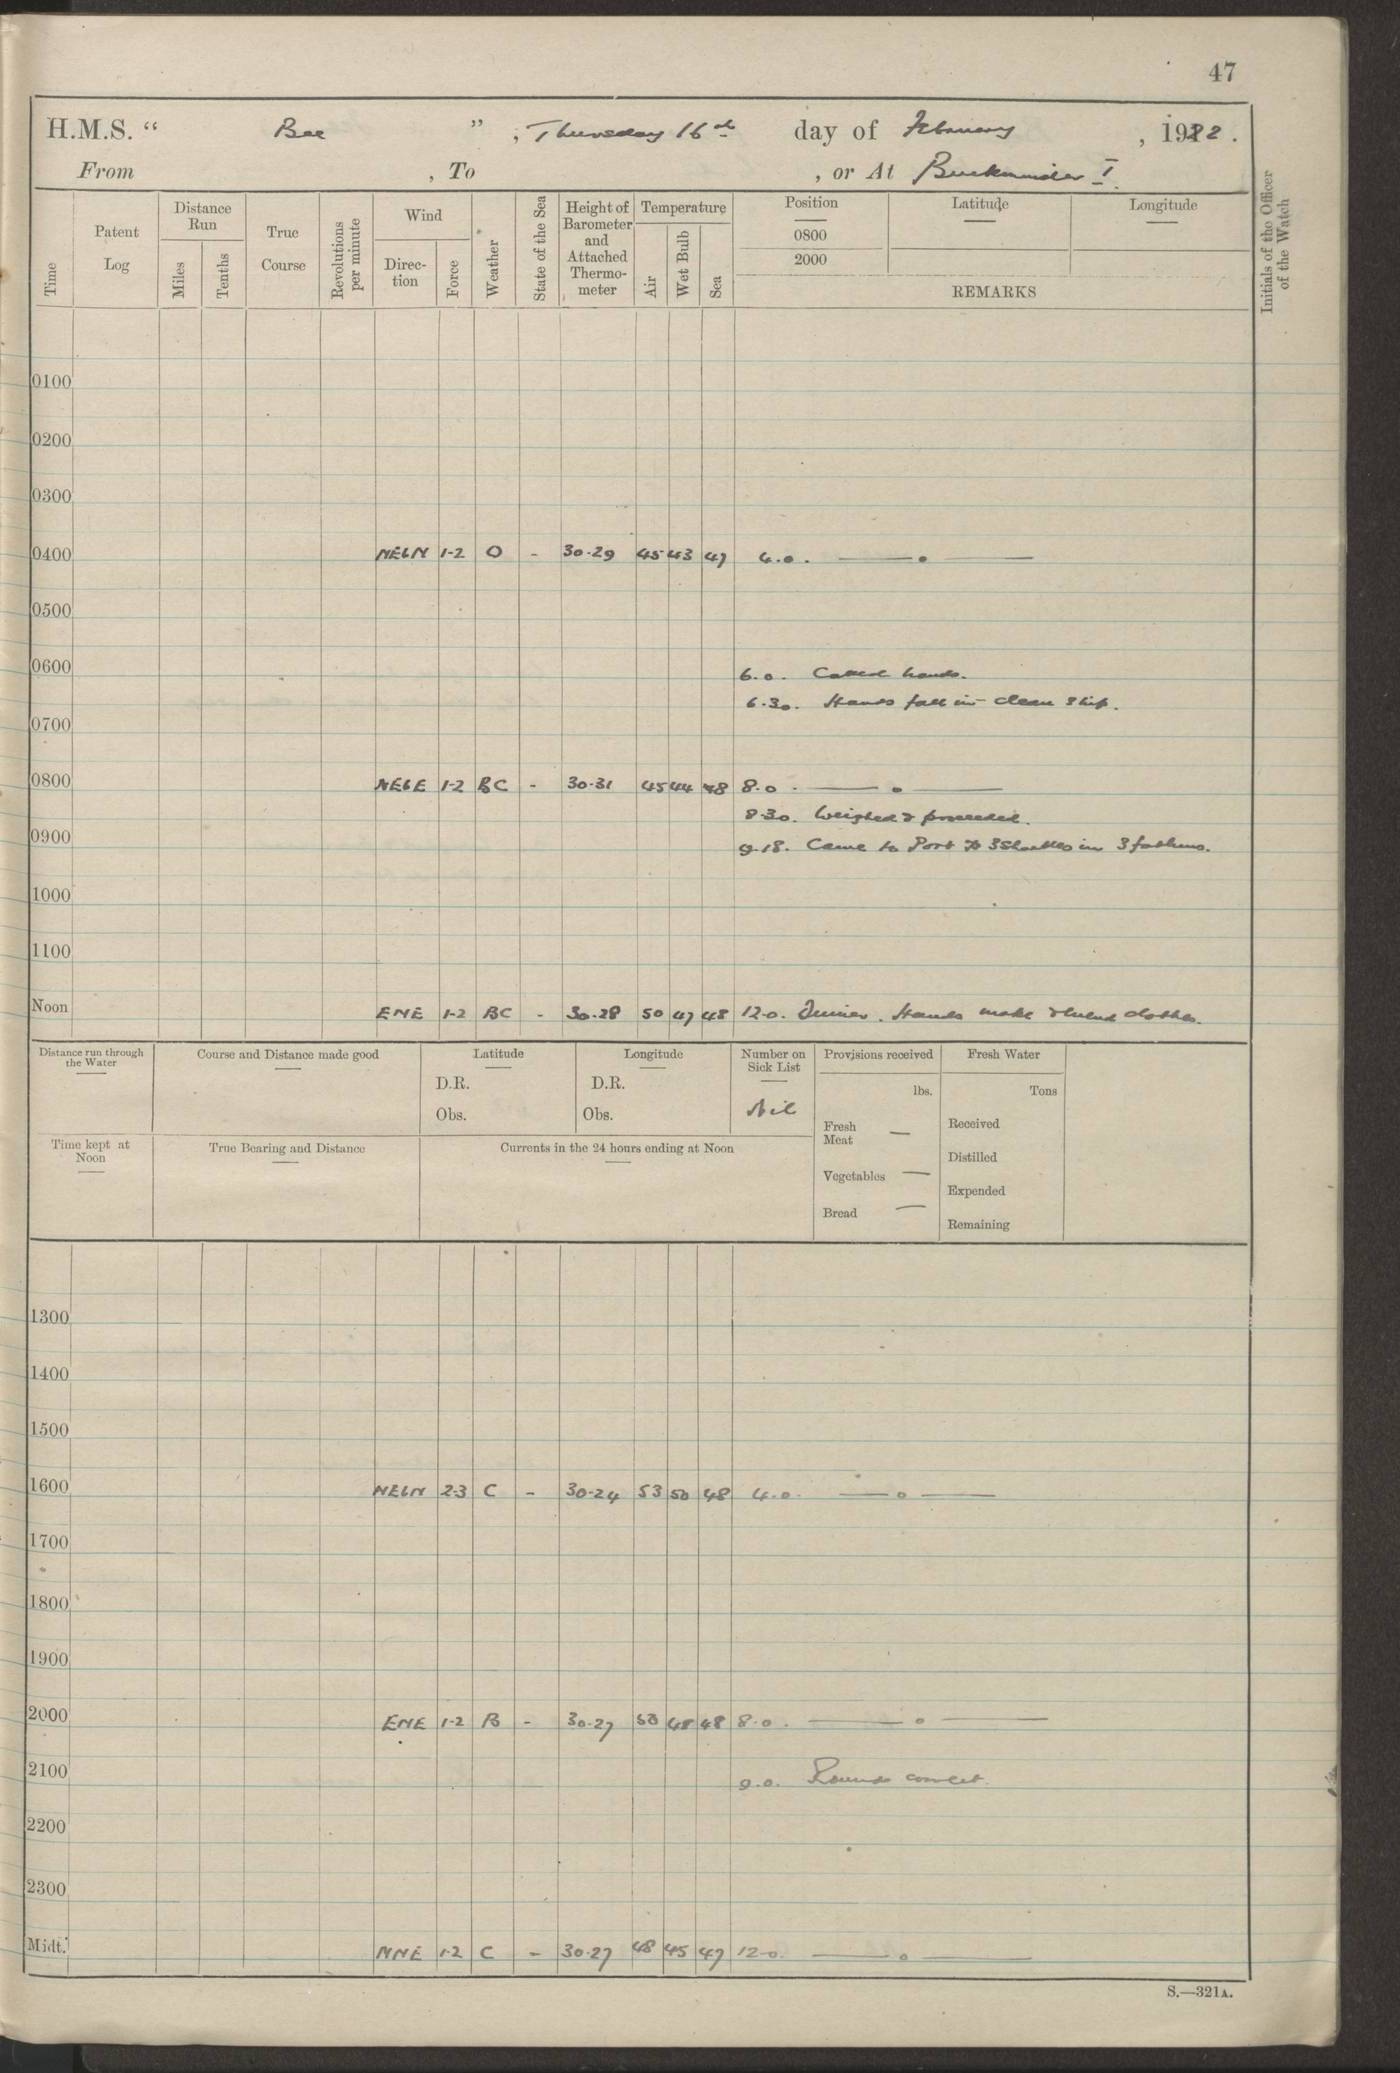 47
H.M.S. " Bee " , Thursday 16th day of February , 1922 .
From , To , or At Buckminster I.
Time Patent Log Distance Run Miles Tenths True Course Revolutions per minute Wind Direc-tion Force Weather State of the Sea Height of Barometer and Attached Thermo-meter Temperature Air Wet Bulb Sea Position 0800 2000 Latitude Longitude REMARKS Initials of the Officer of the Watch
0100
0200
0300
0400 NEbN 1-2 O - 30.29 45 43 47 4.0. —— o ——
0500
0600
6.0. Called hands.
6.30. Hands fall in - clean ship.
0700
0800 NEbE 1-2 BC - 30.31 45 44 48 8.0. —— o ——
8.30. Weighed & proceeded.
0900
9.18. Came to Port 3 Shackles in 3 fathoms.
1000
1100
Noon ENE 1-2 BC - 30.28 50 47 48 12.0. Dinner. Hands make & mend clothes.
Distance run through the Water Course and Distance made good Latitude D.R. Obs. Longitude D.R. Obs. Number on Sick List Nil Provisions received lbs. Fresh Water Tons
Fresh Meat — Received
Time kept at Noon True Bearing and Distance Currents in the 24 hours ending at Noon
Distilled
Vegetables — Expended
Bread — Remaining
1300
1400
1500
1600 NEbN 2-3 C - 30.24 53 50 48 4.0. —— o ——
1700
1800
1900
2000 ENE 1-2 B - 30.27 50 48 48 8.0. —— o ——
2100 9.0. Rounds correct.
2200
2300
Midt. NNE 1-2 C - 30.27 48 45 47 12.0. —— o ——
S.—321A.